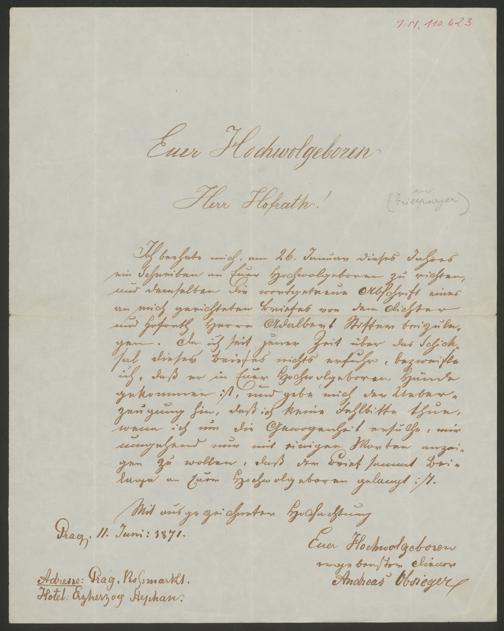 I.N. 110.623
Euer Hochwolgeboren
Herr Hofrath!
Ich beehrte mich, am 26. Januar dieses Jahres
ein Schreiben an Euer Hochwolgeboren zu richten,
und demselben die wortgetreue Abschrift eines
an mich gerichteten Briefes von dem Dichter
und Hofrath Herrn Adalbert Stifter beizule-
gen. Da ich seit jener Zeit über das Schick-
sal dieses Briefes nichts erfuhr, bezweifle
ich, daß er in Euer Hochwolgeboren Hände
gekommen ist, und gebe mich der Ueber-
zeugung hin, daß ich keine Fehlbitte thue,
wenn ich um die Gewogenheit ersuche, mir
umgehend nur mit einigen Worten anzei-
gen zu wollen, daß der Brief sammt Bei-
lage an Euer Hochwolgeboren gelangt ist.
Mit ausgezeichneter Hochachtung
Prag, 11. Juni: 1871.
Euer Hochwolgeboren
ergebenster Diener
Andreas Obsieger
Adresse: Prag. Roßmarkt.
Hotel: Erzherzog Stephan.